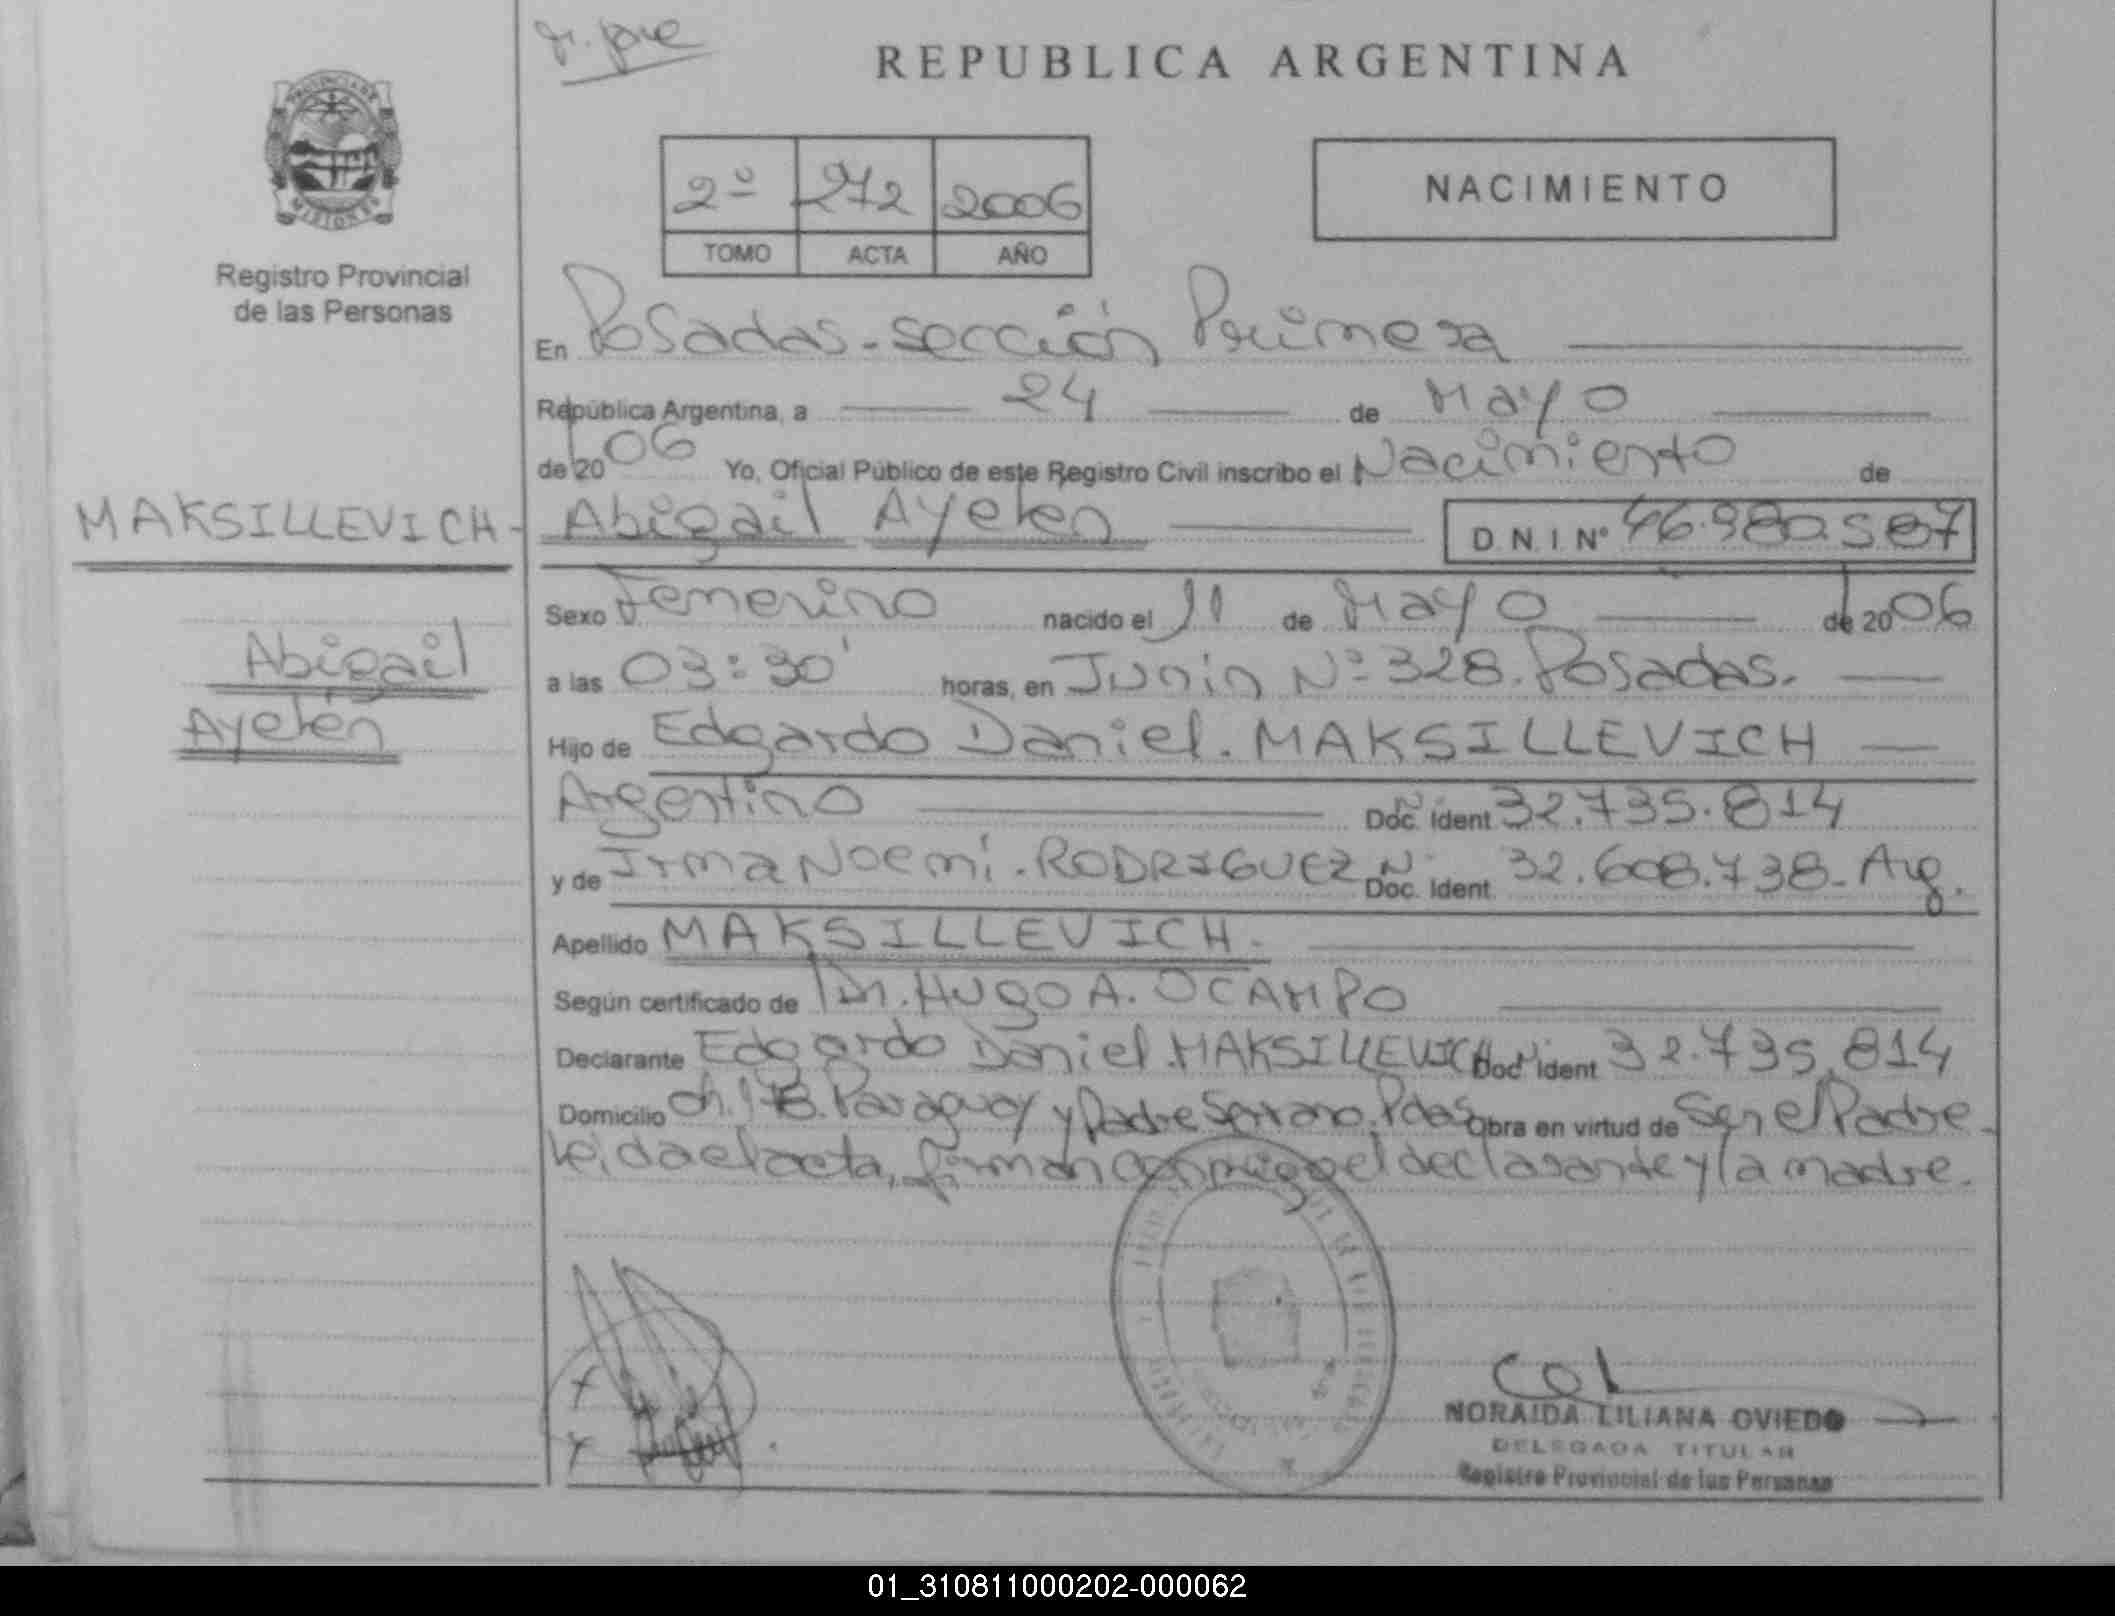 REPUBLICA ARGENTINA
PROVINCIA DE
MISIONES
Registro Provincial
de las Personas
2º 272 2006
TOMO ACTA AÑO
NACIMIENTO
En Posadas-sección Primera
República Argentina, a 24 de Mayo
de 2006 Yo, Oficial Público de este Registro Civil inscribo el Nacimiento de
MAKSILLEVICH- Abigail Ayelén D.N.I. Nº 46.980.587
Sexo Femenino nacido el 11 de Mayo de 2006
Abigail
a las 03:30' horas, en Junín Nº 328. Posadas.
Ayelén
Hijo de Edgardo Daniel. MAKSILLEVICH
Argentino Doc. Ident. 32.735.814
y de Irma Noemí. RODRIGUEZ Doc. Ident. 32.608.738- Arg.
Apellido MAKSILLEVICH.
Según certificado de Dr. HUGO A. OCAMPO
Declarante Edgardo Daniel. MAKSILLEVICH Doc. Ident. 32.735.814
Domicilio Ch. 178. Paraguay y Padre Serrano. Pdas Obra en virtud de Ser el Padre.
Leída el acta, firman conmigo el declarante y la madre.
NORAIDA LILIANA OVIEDO
DELEGADA TITULAR
Registro Provincial de las Personas
01_310811000202-000062